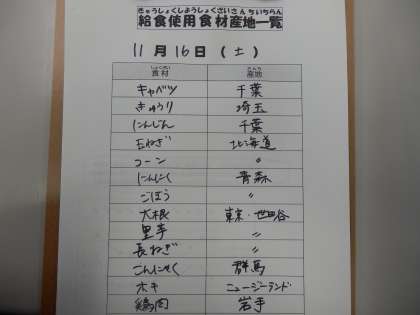 きゅうしょくしようしょくざいさんちいちらん
給食使用食材産地一覧
11月16日(土)
しょくざい さんち
食材 産地
キャベツ 千葉
きゅうり 埼玉
にんじん 千葉
玉ねぎ 北海道
コーン 〃
にんにく 青森
ごぼう 〃
大根 東京・世田谷
里芋 〃
長ねぎ 〃
こんにゃく 群馬
ホキ ニュージーランド
鶏肉 岩手